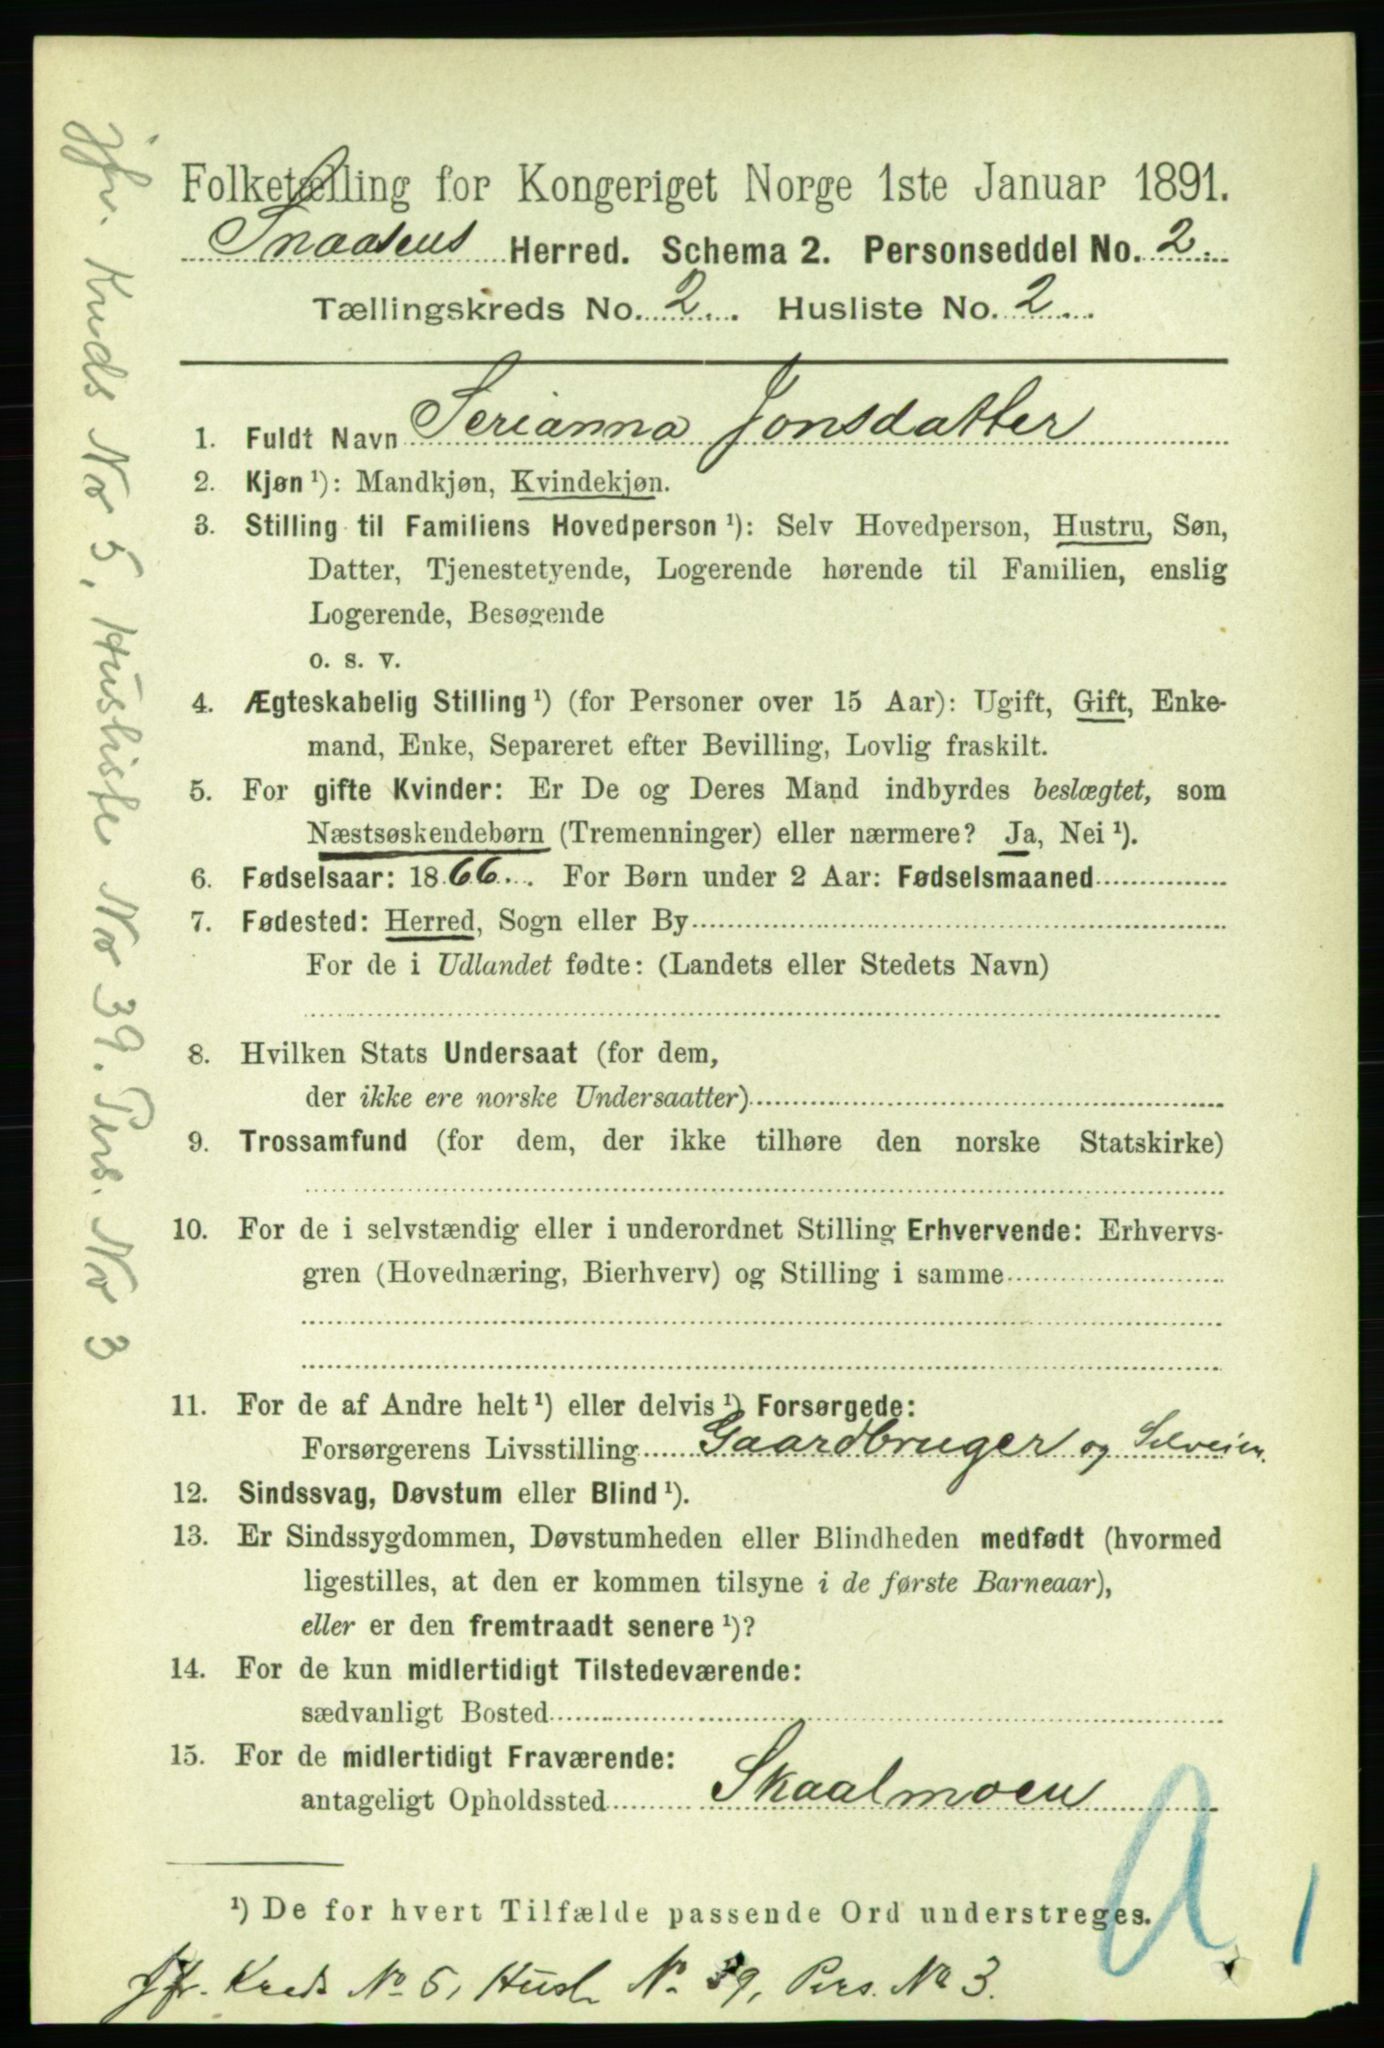 Folketælling for Kongeriget Norge 1ste Januar 1891.
Snaasens Herred. Schema 2. Personseddel No. 2.
Tællingskreds No. 2. Husliste No. 2.
1. Fuldt Navn Serianna Jonsdatter
2. Kjøn ¹): Mandkjøn, Kvindekjøn.
3. Stilling til Familiens Hovedperson ¹): Selv Hovedperson, Hustru, Søn,
Datter, Tjenestetyende, Logerende hørende til Familien, enslig
Logerende, Besøgende
o. s. v.
4. Ægteskabelig Stilling ¹) (for Personer over 15 Aar): Ugift, Gift, Enke-
mand, Enke, Separeret efter Bevilling, Lovlig fraskilt.
5. For gifte Kvinder: Er De og Deres Mand indbyrdes beslægtet, som
Næstsøskendebørn (Tremenninger) eller nærmere? Ja, Nei ¹).
6. Fødselsaar: 1866. For Børn under 2 Aar: Fødselsmaaned
7. Fødested: Herred, Sogn eller By
For de i Udlandet fødte: (Landets eller Stedets Navn)
8. Hvilken Stats Undersaat (for dem,
der ikke ere norske Undersaatter)
9. Trossamfund (for dem, der ikke tilhøre den norske Statskirke)
10. For de i selvstændig eller i underordnet Stilling Erhvervende: Erhvervs-
gren (Hovednæring, Bierhverv) og Stilling i samme
11. For de af Andre helt ¹) eller delvis ¹) Forsørgede:
Forsørgerens Livsstilling Gaardbruger og Selveier.
12. Sindssvag, Døvstum eller Blind ¹).
13. Er Sindssygdommen, Døvstumheden eller Blindheden medfødt (hvormed
ligestilles, at den er kommen tilsyne i de første Barneaar),
eller er den fremtraadt senere ¹)?
14. For de kun midlertidigt Tilstedeværende:
sædvanligt Bosted
15. For de midlertidigt Fraværende:
antageligt Opholdssted Skaalmoen
¹) De for hvert Tilfælde passende Ord understreges.
Jfr. Kreds No 5, Husl. No. 39, Pers. No 3.
jfr. Kreds No 5, Husliste No 39. Pers. No 3
A 1